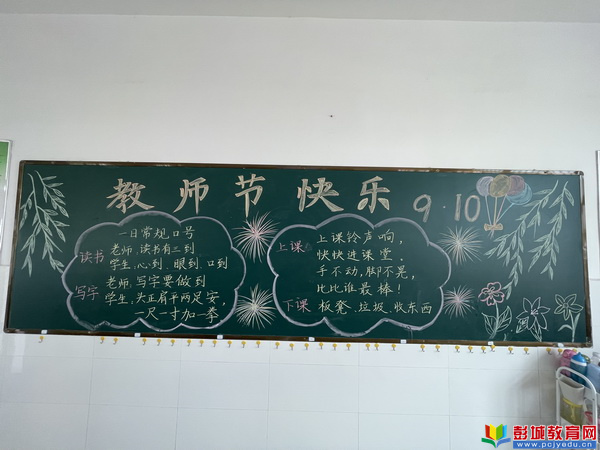 教师节快乐 9.10
一日常规口号
读书
老师、读书有三到
学生、心到 眼到 口到
写字
老师、写字要做到
学生、头正肩平两足安，
一尺一寸加一拳
上课
上课铃声响，
快快进课堂．
手不动，脚不晃，
比比谁最棒！
下课
板凳、垃圾、收东西
彭城教育网
www.pcjyedu.cn